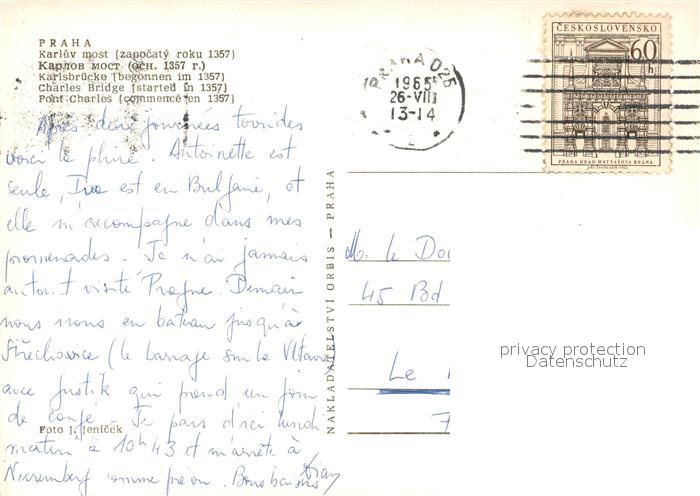 PRAHA
Karlův most (započatý roku 1357)
Карлов мост (осн. 1357 г.)
Karlsbrücke (begonnen im 1357)
Charles Bridge (started in 1357)
Pont Charles (commencé en 1357)
Après deux journées torrides
voici la pluie. Antoinette est
seule, Ivo est en Bulgarie, et
elle m'accompagne dans mes
promenades. Je n'ai jamais
autant visité Prague. Demain
nous irons en bateau jusqu'à
(le barrage sur la Vltava)
avec qui prend un jour
de congé. Je pars d'ici lundi
Foto J. Jeníček
matin à 10h43 et m'arrête à
Nuremberg comme prévu. Bons baisers
NAKLADATELSTVÍ ORBIS — PRAHA
PRAHA 025
1965
26-VIII
13-14
ČESKOSLOVENSKO
60 h
PRAHA HRAD MATYÁŠOVA BRÁNA
M. le Do
45 Bd
Le
7
privacy protection
Datenschutz